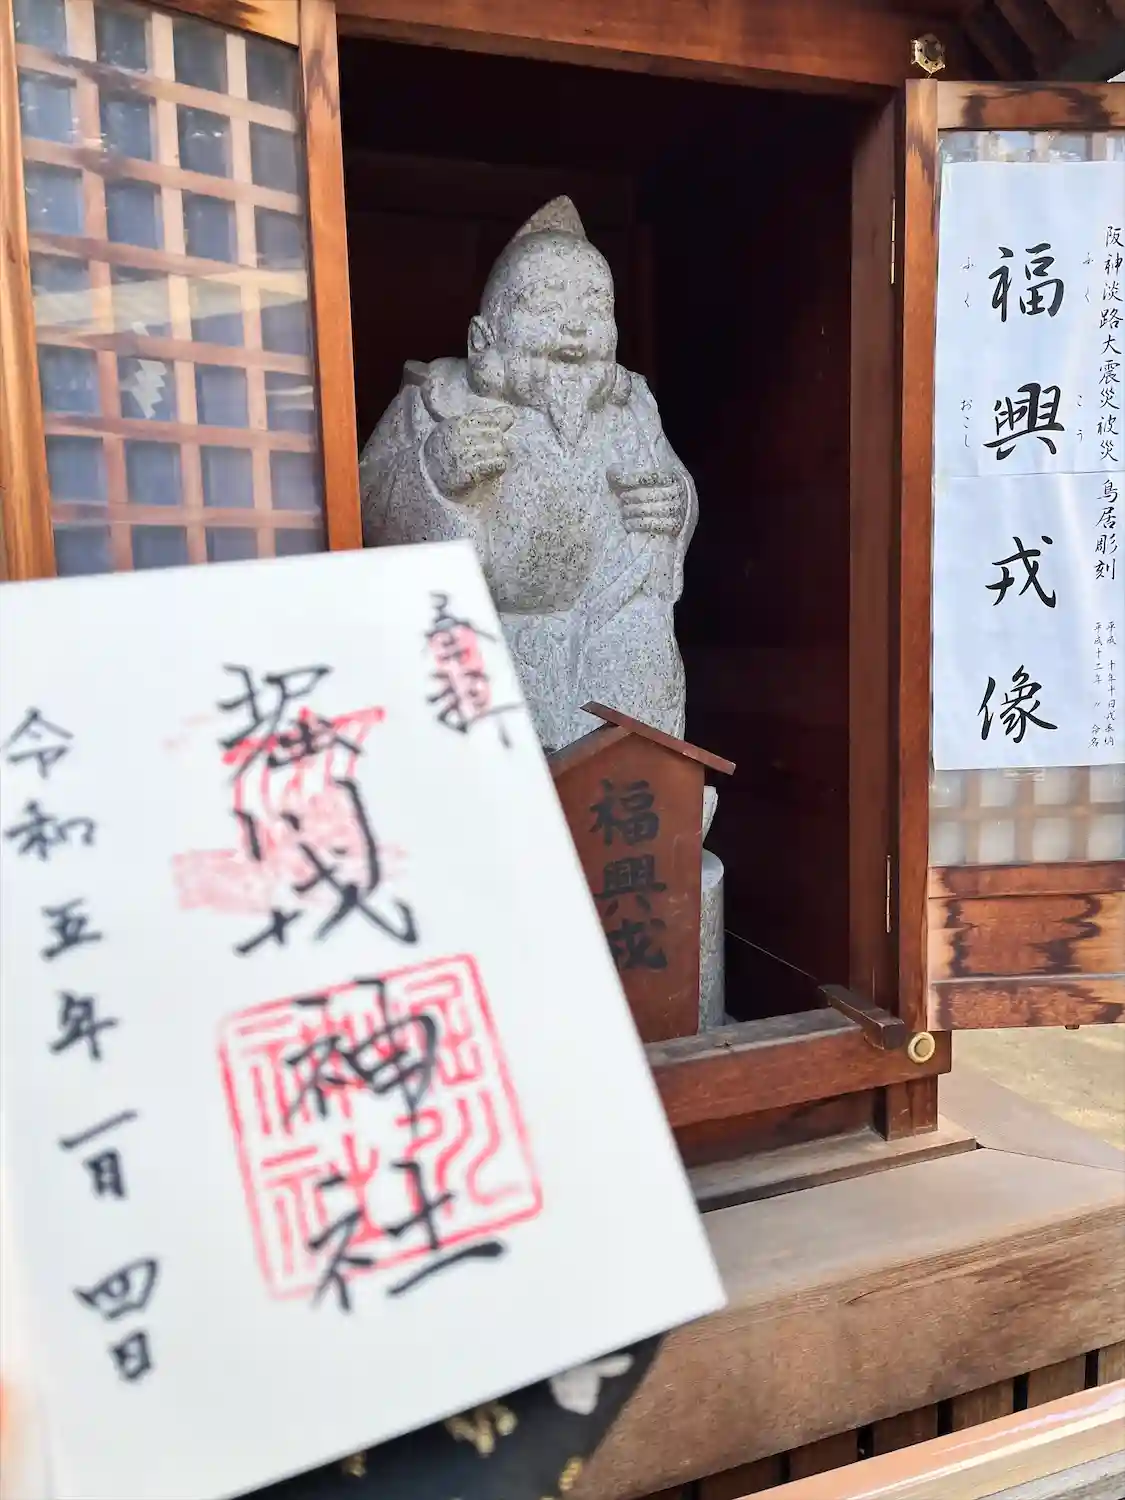 阪神淡路大震災被災 鳥居彫刻
平成 十年十日戎奉納
平成十二年 〃 命名
ふく こう
福興戎像
ふく おこし
福興戎
奉拝
堀川戎
神社
堀川
神社
令和五年一月四日